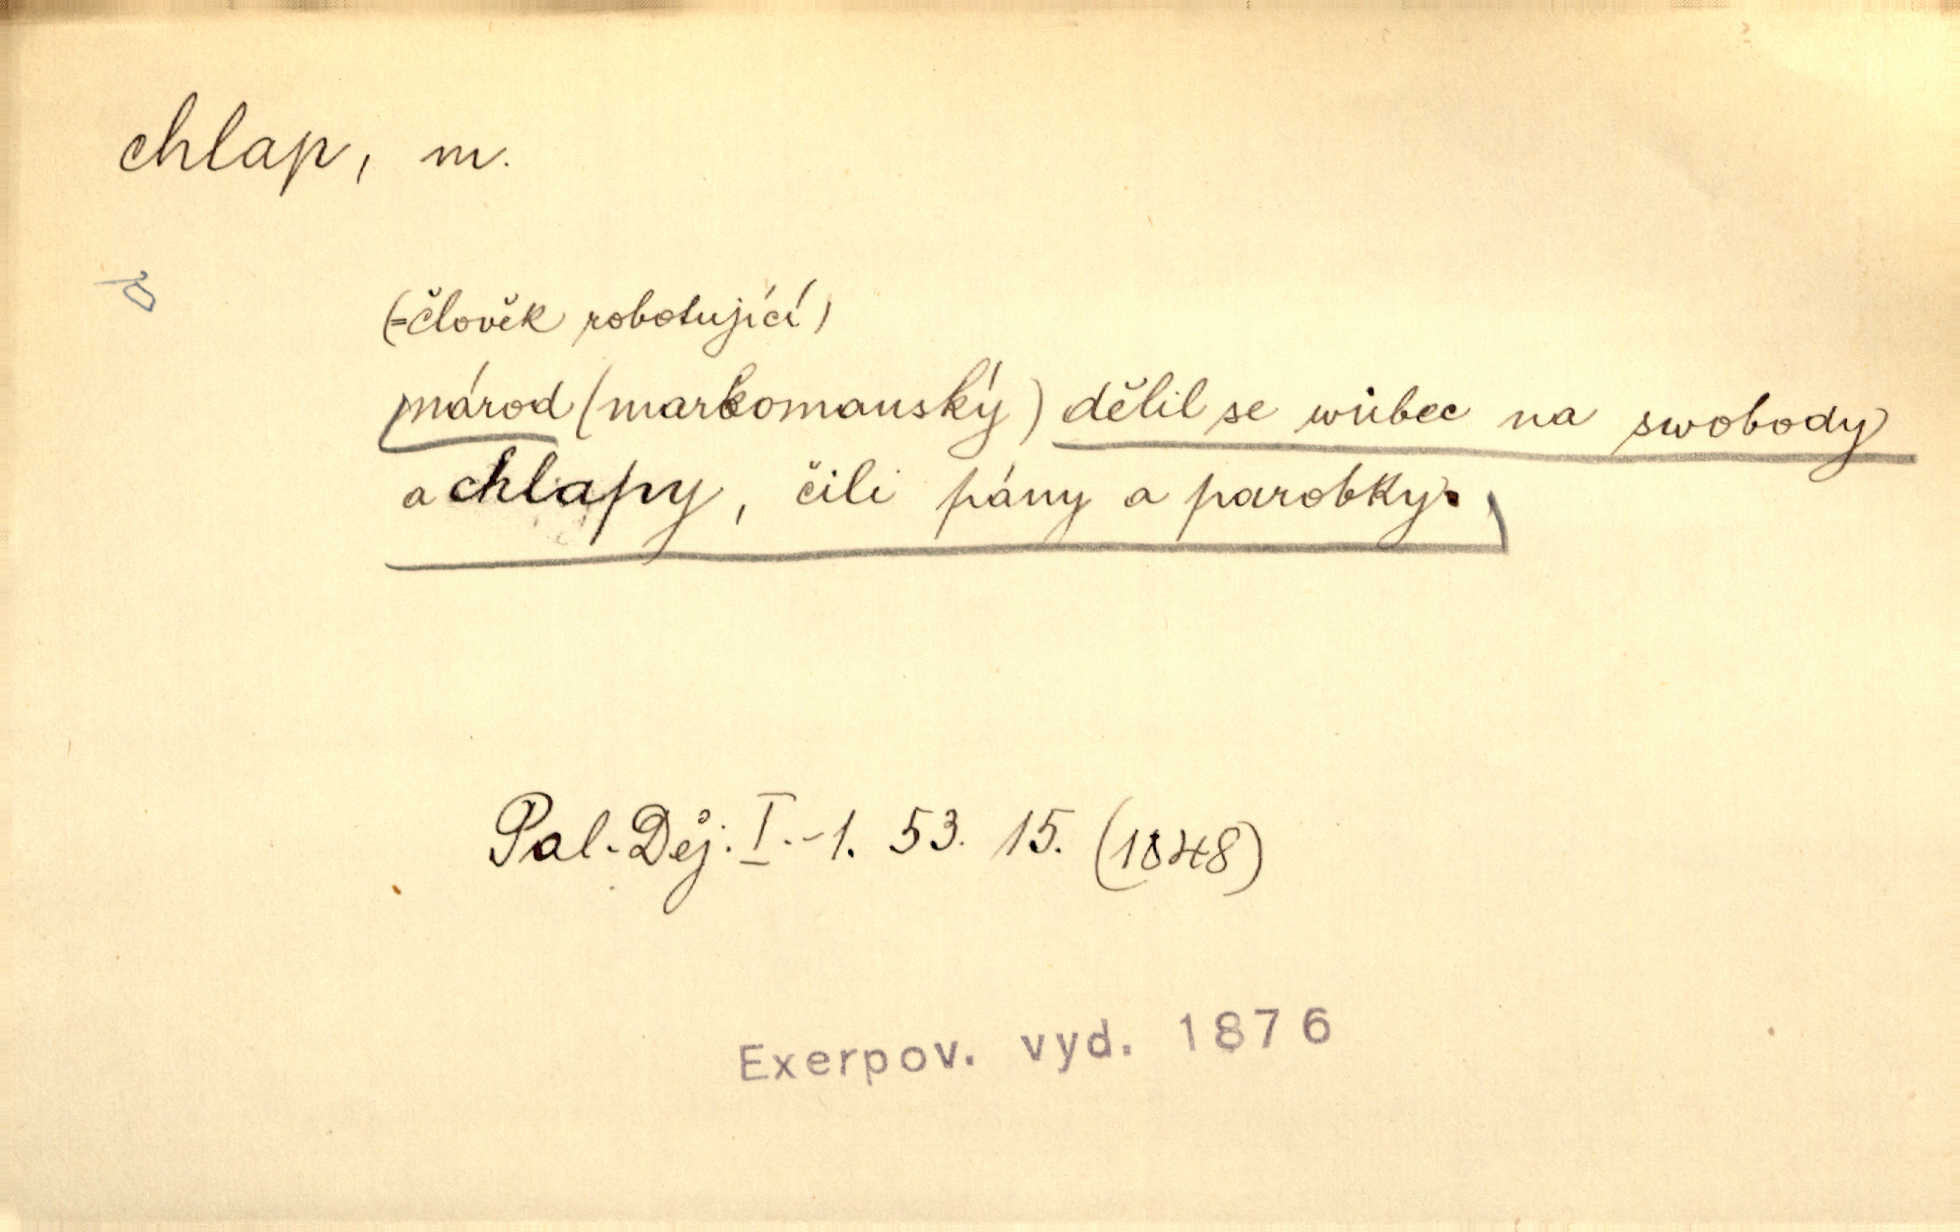 chlap, m.
(=člověk robotující)
národ (markomanský) dělil se wůbec na swobody
a chlapy, čili pány a parobky.
Pal. Děj. I.-1. 53. 15. (1848)
Exerpov. vyd. 1876